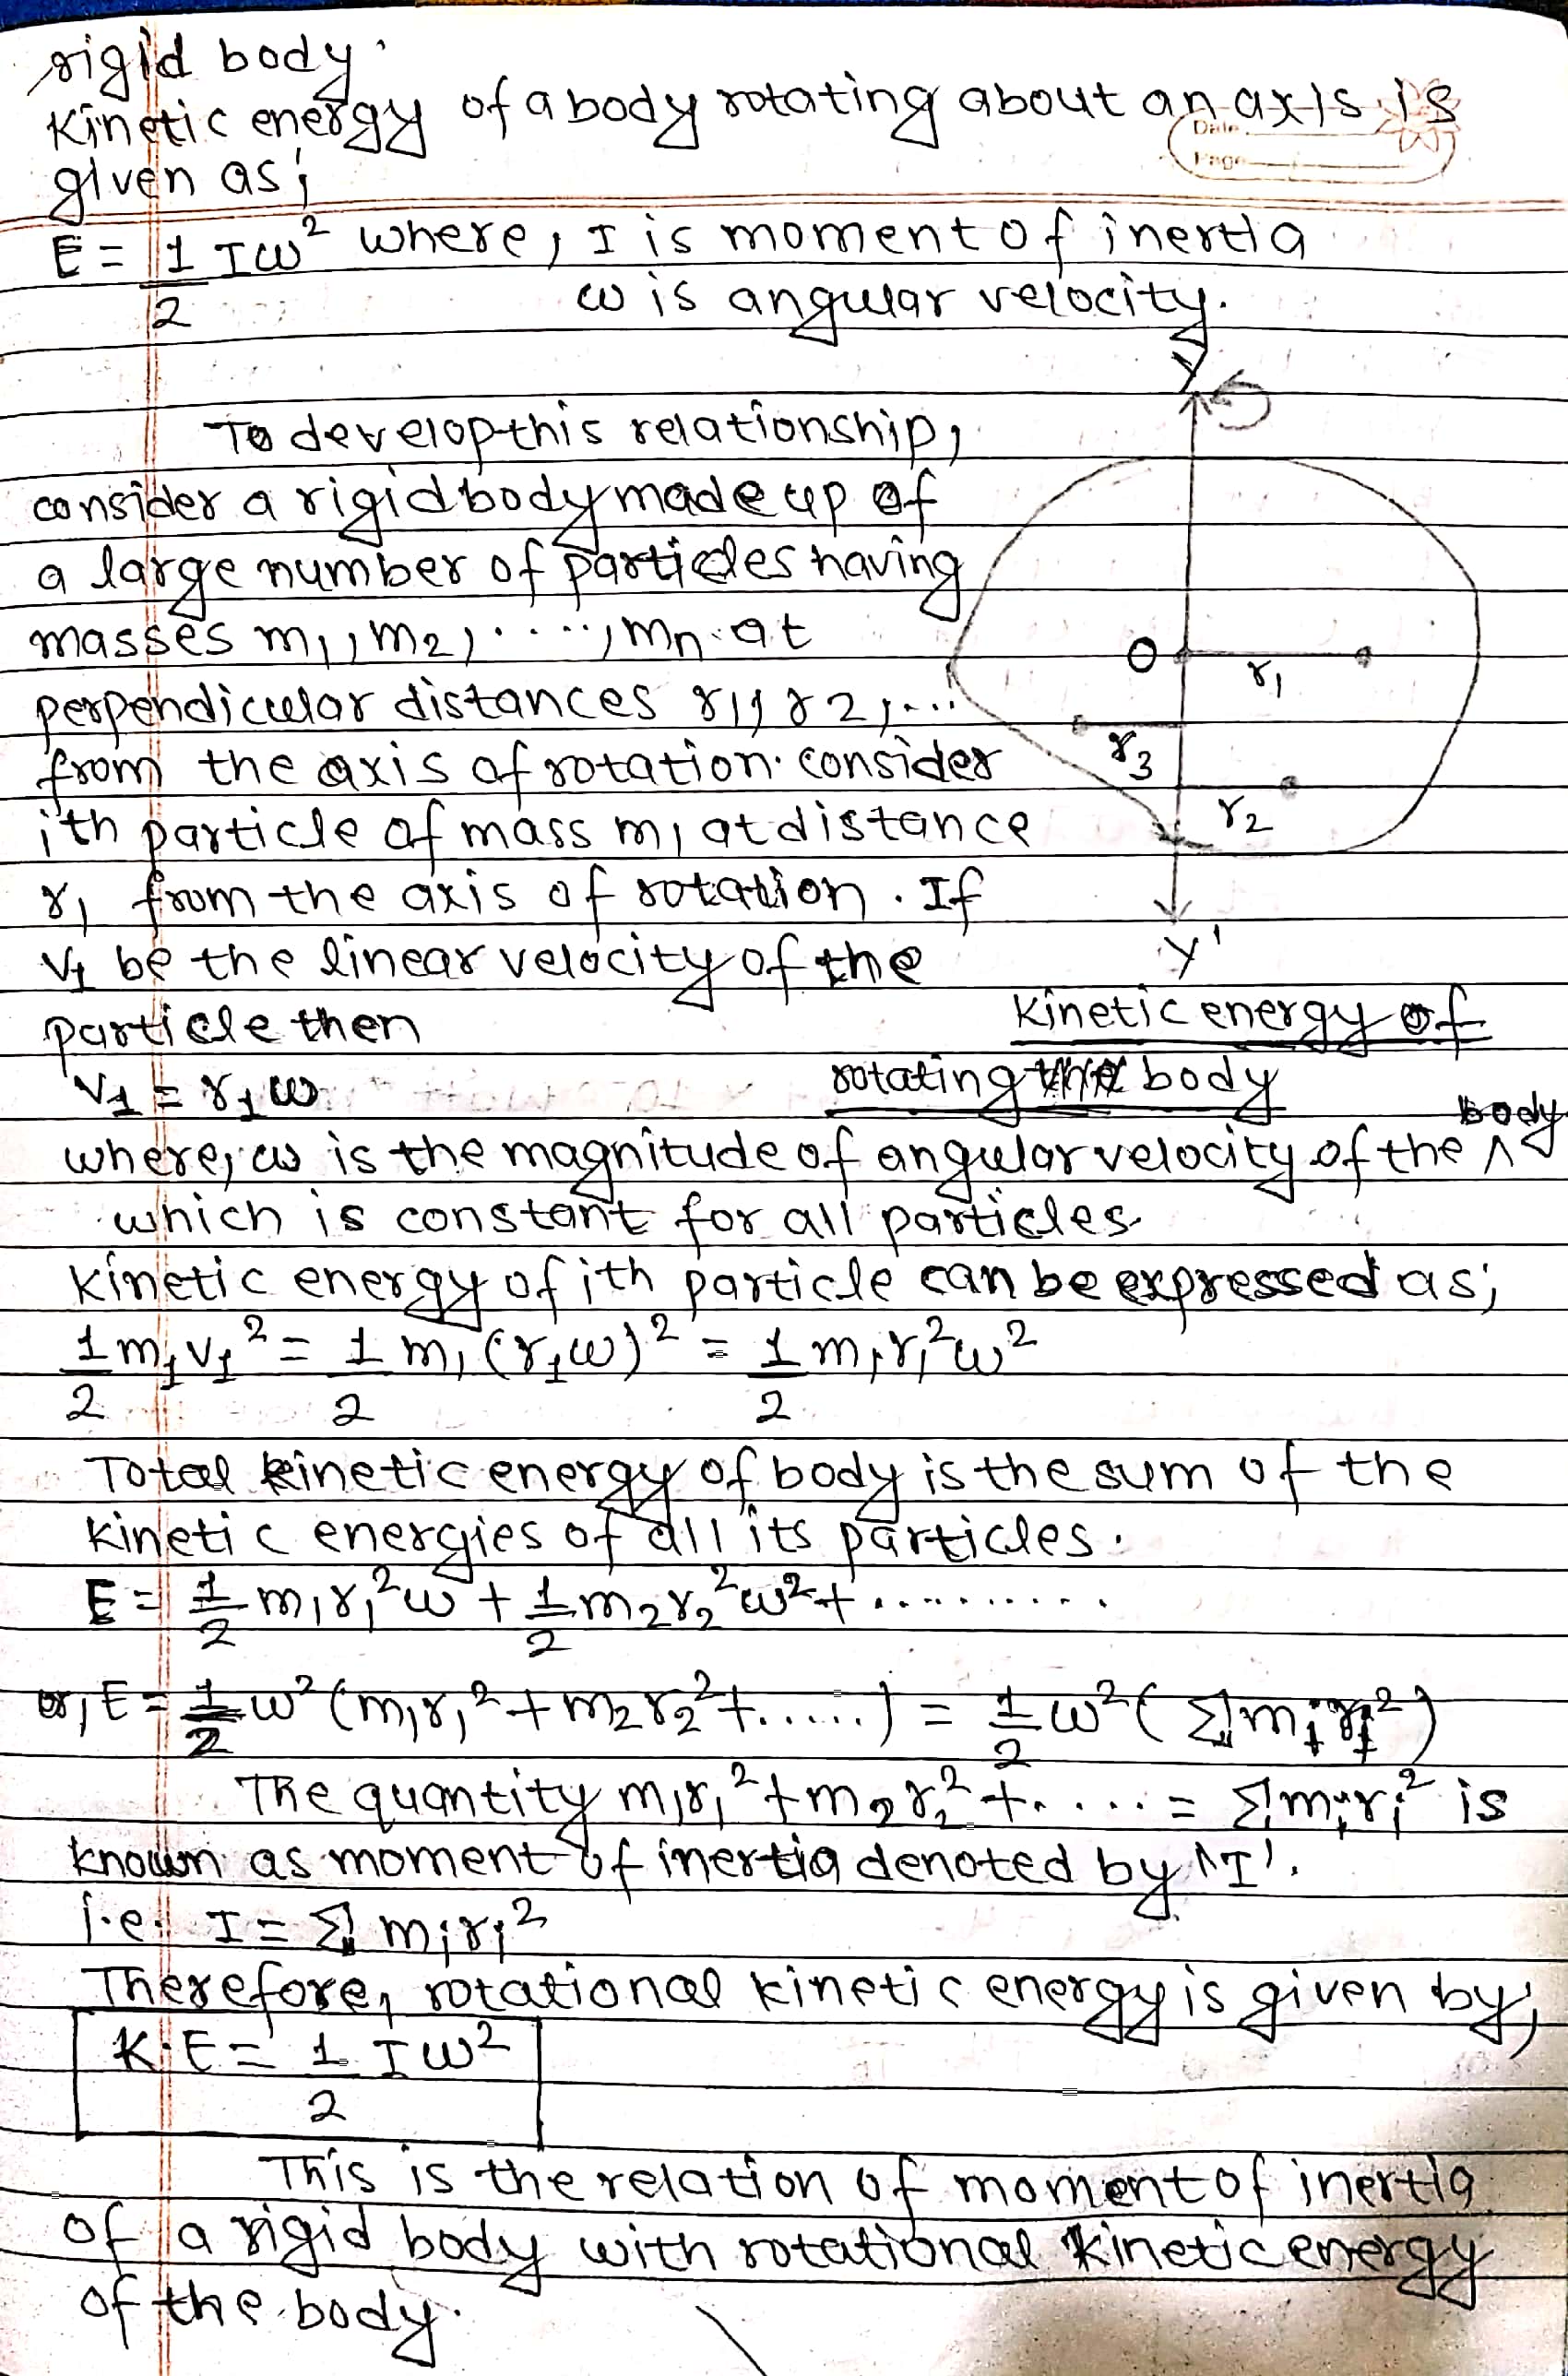 rigid body.
Kinetic energy of a body rotating about an axis is
Date
Page
given as;
E = 1/2 Iω² where, I is moment of inertia
ω is angular velocity.
Y
To develop this relationship,
consider a rigid body made up of
a large number of particles having
masses m₁, m₂, ....., mₙ at
O r₁
perpendicular distances r₁, r₂, ...
r₃
from the axis of rotation. consider
r₂
ith particle of mass m₁ at distance
r₁ from the axis of rotation. If
v₁ be the linear velocity of the
Y'
particle then
Kinetic energy of
rotating body
v₁ = r₁ω
where, ω is the magnitude of angular velocity of the ^ body
which is constant for all particles.
kinetic energy of ith particle can be expressed as;
1/2 m₁v₁² = 1/2 m₁(r₁ω)² = 1/2 m₁r₁²ω²
Total kinetic energy of body is the sum of the
kinetic energies of all its particles.
E = 1/2 m₁r₁²ω + 1/2 m₂r₂²ω² + ..........
or, E = 1/2 ω² (m₁r₁² + m₂r₂² + ......) = 1/2 ω² (Σmᵢrᵢ²)
The quantity m₁r₁² + m₂r₂² + ..... = Σmᵢrᵢ² is
known as moment of inertia denoted by 'I'.
i.e. I = Σ mᵢrᵢ²
Therefore, rotational kinetic energy is given by;
K.E = 1/2 Iω²
This is the relation of moment of inertia
of a rigid body with rotational kinetic energy
of the body.